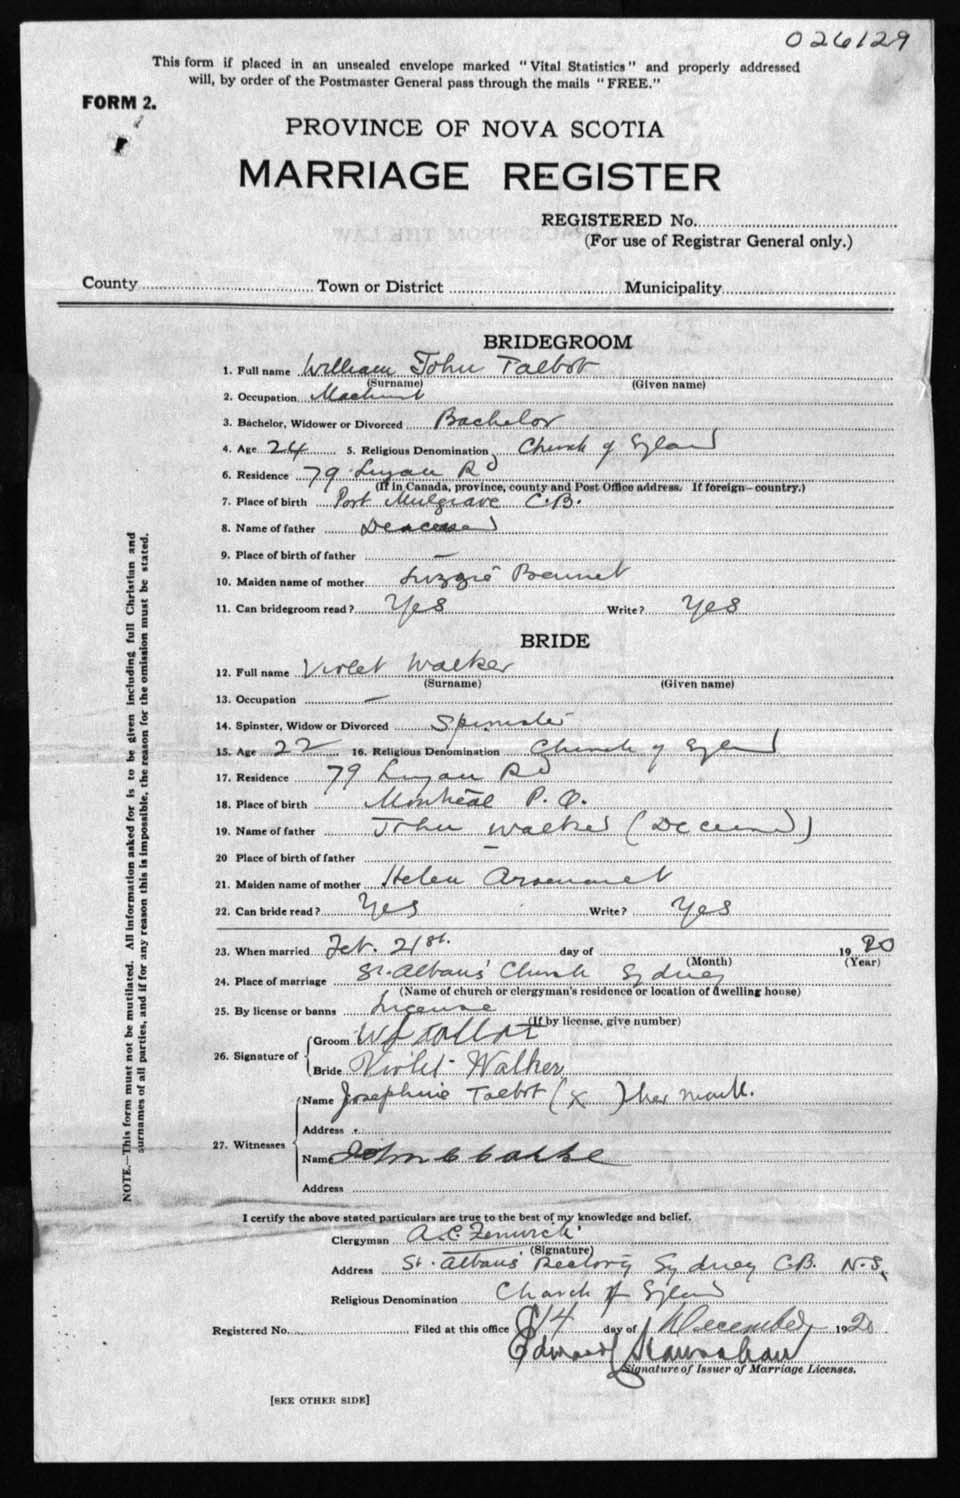 026129
This form if placed in an unsealed envelope marked "Vital Statistics" and properly addressed
will, by order of the Postmaster General pass through the mails "FREE."
FORM 2.
PROVINCE OF NOVA SCOTIA
MARRIAGE REGISTER
REGISTERED No.
(For use of Registrar General only.)
County Town or District Municipality
BRIDEGROOM
1. Full name William John Talbot
(Surname) (Given name)
2. Occupation Machinist
3. Bachelor, Widower or Divorced Bachelor
4. Age 24 5. Religious Denomination Church of England
6. Residence 79 Rd
(If in Canada, province, county and Post Office address. If foreign—country.)
7. Place of birth Port Mulgrave C.B.
8. Name of father Deceased
9. Place of birth of father —
10. Maiden name of mother Lizzie Bennet
11. Can bridegroom read? Yes Write? Yes
BRIDE
12. Full name Violet Walker
(Surname) (Given name)
13. Occupation —
14. Spinster, Widow or Divorced Spinster
15. Age 22 16. Religious Denomination Church of England
17. Residence 79 Rd
18. Place of birth Montreal P.Q.
19. Name of father John Walker (Deceased)
20 Place of birth of father —
21. Maiden name of mother Helen
22. Can bride read? Yes Write? Yes
23. When married Feb. 21st. day of 1920
(Month) (Year)
24. Place of marriage St. Albans' Church Sydney
(Name of church or clergyman's residence or location of dwelling house)
25. By license or banns License
(If by license, give number)
26. Signature of Groom W J Talbot
Bride Violet Walker
27. Witnesses Name Josephine Talbot (X) her mark.
Address
Name John C
Address
I certify the above stated particulars are true to the best of my knowledge and belief.
Clergyman A.E.
(Signature)
Address St. Albans' Rectory Sydney C.B. N.S.
Religious Denomination Church of England
Registered No. Filed at this office 14 day of December 1920
Edward
Signature of Issuer of Marriage Licenses.
[SEE OTHER SIDE]
NOTE.—This form must not be mutilated. All information asked for is to be given including full Christian and
surnames of all parties, and if for any reason this is impossible, the reason for the omission must be stated.